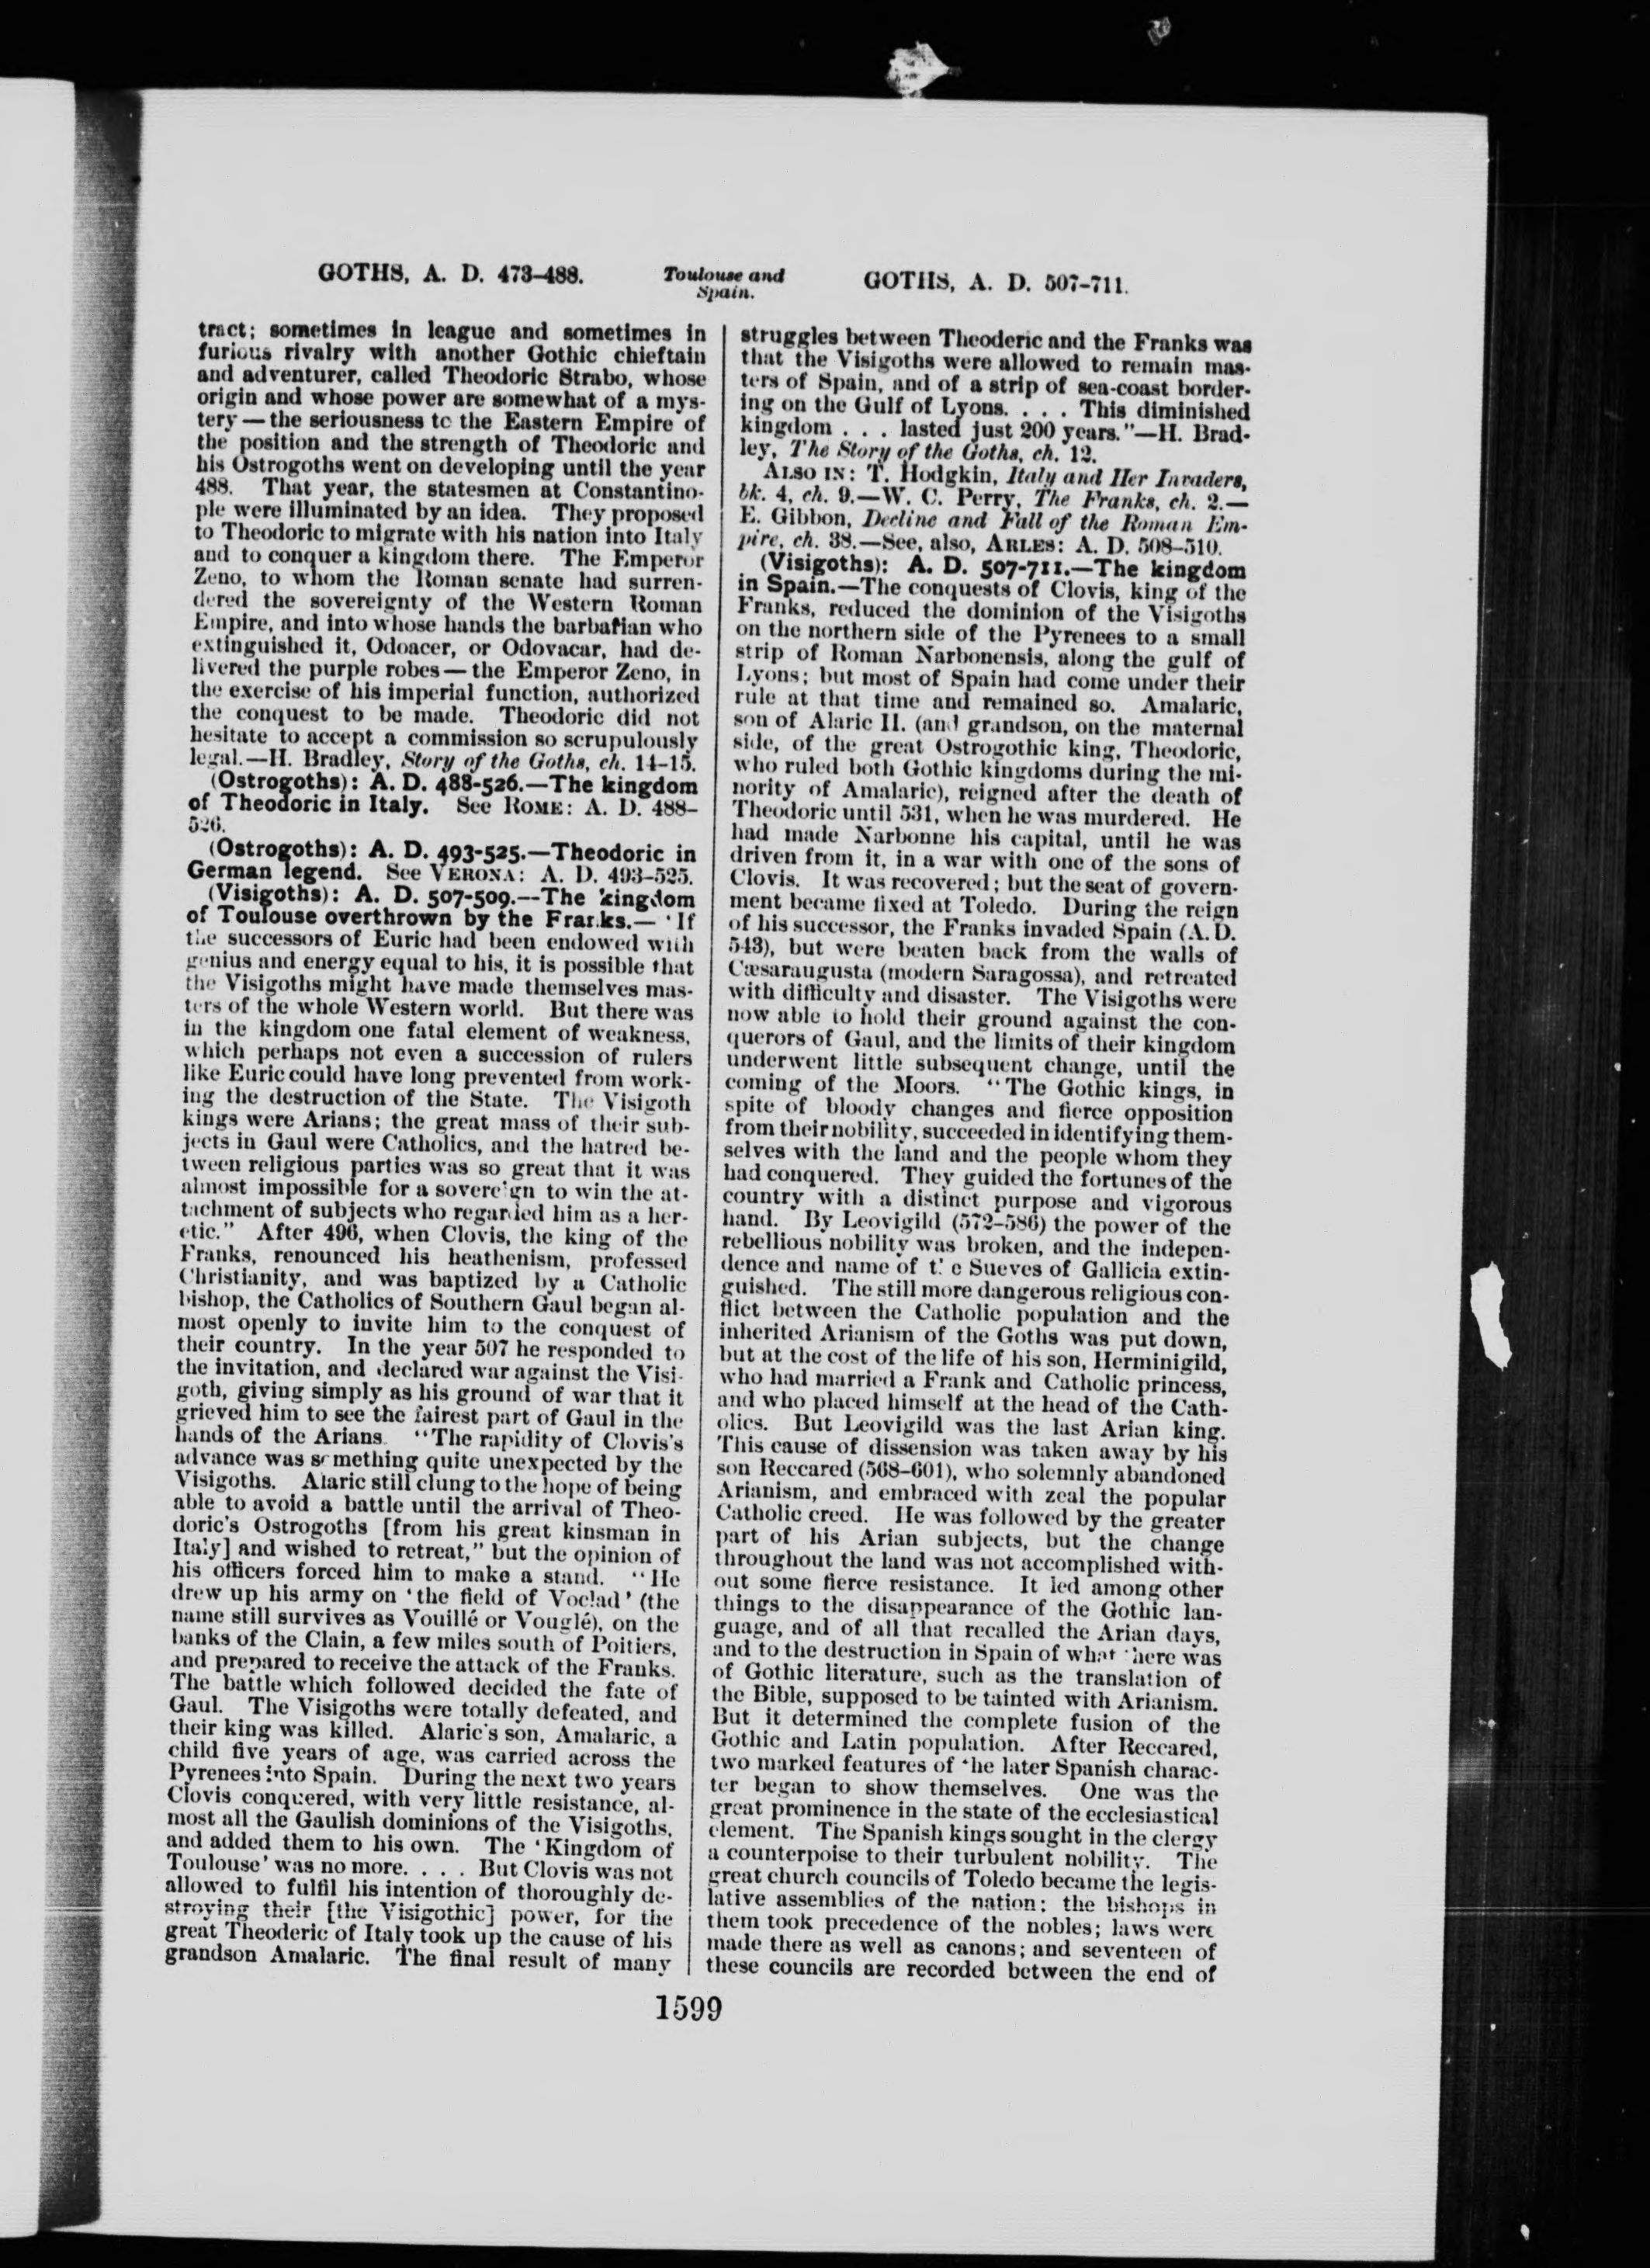 GOTHS, A. D. 473-488.
Toulouse and
Spain.
GOTHS, A. D. 507-711.
tract; sometimes in league and sometimes in
furious rivalry with another Gothic chieftain
and adventurer, called Theodoric Strabo, whose
origin and whose power are somewhat of a mys-
tery — the seriousness to the Eastern Empire of
the position and the strength of Theodoric and
his Ostrogoths went on developing until the year
488. That year, the statesmen at Constantino-
ple were illuminated by an idea. They proposed
to Theodoric to migrate with his nation into Italy
and to conquer a kingdom there. The Emperor
Zeno, to whom the Roman senate had surren-
dered the sovereignty of the Western Roman
Empire, and into whose hands the barbarian who
extinguished it, Odoacer, or Odovacar, had de-
livered the purple robes — the Emperor Zeno, in
the exercise of his imperial function, authorized
the conquest to be made. Theodoric did not
hesitate to accept a commission so scrupulously
legal.—H. Bradley, Story of the Goths, ch. 14-15.
(Ostrogoths): A. D. 488-526.—The kingdom
of Theodoric in Italy. See ROME: A. D. 488-
526.
(Ostrogoths): A. D. 493-525.—Theodoric in
German legend. See VERONA: A. D. 493-525.
(Visigoths): A. D. 507-509.—The kingdom
of Toulouse overthrown by the Franks.— 'If
the successors of Euric had been endowed with
genius and energy equal to his, it is possible that
the Visigoths might have made themselves mas-
ters of the whole Western world. But there was
in the kingdom one fatal element of weakness,
which perhaps not even a succession of rulers
like Euric could have long prevented from work-
ing the destruction of the State. The Visigoth
kings were Arians; the great mass of their sub-
jects in Gaul were Catholics, and the hatred be-
tween religious parties was so great that it was
almost impossible for a sovereign to win the at-
tachment of subjects who regarded him as a her-
etic." After 496, when Clovis, the king of the
Franks, renounced his heathenism, professed
Christianity, and was baptized by a Catholic
bishop, the Catholics of Southern Gaul began al-
most openly to invite him to the conquest of
their country. In the year 507 he responded to
the invitation, and declared war against the Visi-
goth, giving simply as his ground of war that it
grieved him to see the fairest part of Gaul in the
hands of the Arians. "The rapidity of Clovis's
advance was something quite unexpected by the
Visigoths. Alaric still clung to the hope of being
able to avoid a battle until the arrival of Theo-
doric's Ostrogoths [from his great kinsman in
Italy] and wished to retreat," but the opinion of
his officers forced him to make a stand. "He
drew up his army on 'the field of Voclad' (the
name still survives as Vouillé or Vouglé), on the
banks of the Clain, a few miles south of Poitiers,
and prepared to receive the attack of the Franks.
The battle which followed decided the fate of
Gaul. The Visigoths were totally defeated, and
their king was killed. Alaric's son, Amalaric, a
child five years of age, was carried across the
Pyrenees into Spain. During the next two years
Clovis conquered, with very little resistance, al-
most all the Gaulish dominions of the Visigoths,
and added them to his own. The 'Kingdom of
Toulouse' was no more. . . . But Clovis was not
allowed to fulfil his intention of thoroughly de-
stroying their [the Visigothic] power, for the
great Theoderic of Italy took up the cause of his
grandson Amalaric. The final result of many
struggles between Theoderic and the Franks was
that the Visigoths were allowed to remain mas-
ters of Spain, and of a strip of sea-coast border-
ing on the Gulf of Lyons. . . . This diminished
kingdom . . . lasted just 200 years."—H. Brad-
ley, The Story of the Goths, ch. 12.
ALSO IN: T. Hodgkin, Italy and Her Invaders,
bk. 4, ch. 9.—W. C. Perry, The Franks, ch. 2.—
E. Gibbon, Decline and Fall of the Roman Em-
pire, ch. 38.—See, also, ARLES: A. D. 508-510.
(Visigoths): A. D. 507-711.—The kingdom
in Spain.—The conquests of Clovis, king of the
Franks, reduced the dominion of the Visigoths
on the northern side of the Pyrenees to a small
strip of Roman Narbonensis, along the gulf of
Lyons; but most of Spain had come under their
rule at that time and remained so. Amalaric,
son of Alaric II. (and grandson, on the maternal
side, of the great Ostrogothic king, Theodoric,
who ruled both Gothic kingdoms during the mi-
nority of Amalaric), reigned after the death of
Theodoric until 531, when he was murdered. He
had made Narbonne his capital, until he was
driven from it, in a war with one of the sons of
Clovis. It was recovered; but the seat of govern-
ment became fixed at Toledo. During the reign
of his successor, the Franks invaded Spain (A. D.
543), but were beaten back from the walls of
Cæsaraugusta (modern Saragossa), and retreated
with difficulty and disaster. The Visigoths were
now able to hold their ground against the con-
querors of Gaul, and the limits of their kingdom
underwent little subsequent change, until the
coming of the Moors. "The Gothic kings, in
spite of bloody changes and fierce opposition
from their nobility, succeeded in identifying them-
selves with the land and the people whom they
had conquered. They guided the fortunes of the
country with a distinct purpose and vigorous
hand. By Leovigild (572-586) the power of the
rebellious nobility was broken, and the indepen-
dence and name of the Sueves of Gallicia extin-
guished. The still more dangerous religious con-
flict between the Catholic population and the
inherited Arianism of the Goths was put down,
but at the cost of the life of his son, Herminigild,
who had married a Frank and Catholic princess,
and who placed himself at the head of the Cath-
olics. But Leovigild was the last Arian king.
This cause of dissension was taken away by his
son Reccared (568-601), who solemnly abandoned
Arianism, and embraced with zeal the popular
Catholic creed. He was followed by the greater
part of his Arian subjects, but the change
throughout the land was not accomplished with-
out some fierce resistance. It led among other
things to the disappearance of the Gothic lan-
guage, and of all that recalled the Arian days,
and to the destruction in Spain of what there was
of Gothic literature, such as the translation of
the Bible, supposed to be tainted with Arianism.
But it determined the complete fusion of the
Gothic and Latin population. After Reccared,
two marked features of the later Spanish charac-
ter began to show themselves. One was the
great prominence in the state of the ecclesiastical
element. The Spanish kings sought in the clergy
a counterpoise to their turbulent nobility. The
great church councils of Toledo became the legis-
lative assemblies of the nation; the bishops in
them took precedence of the nobles; laws were
made there as well as canons; and seventeen of
these councils are recorded between the end of
1599